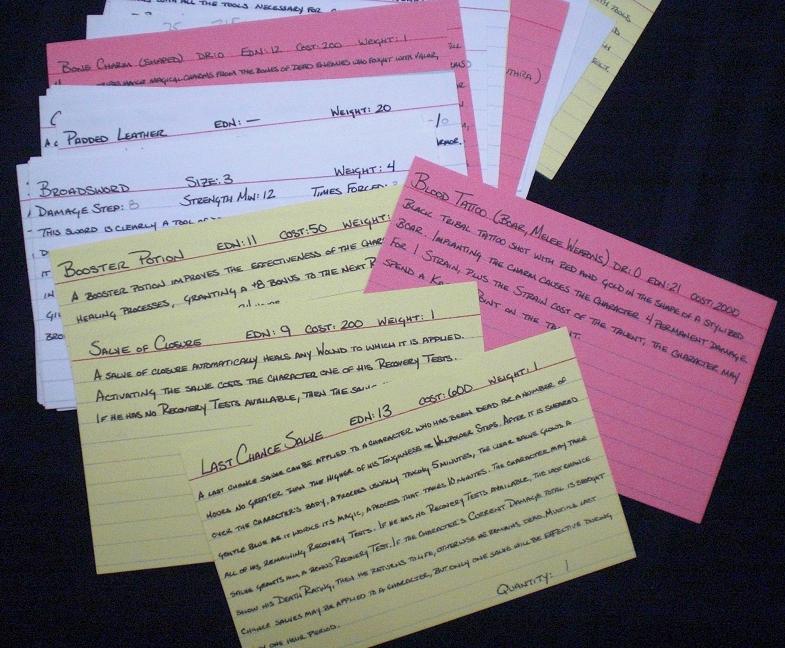 ALL THE TOOLS NECESSARY FOR
BONE CHARM (SHAPED) DR:0 EDN:12 COST:200 WEIGHT:1
MAGICAL CHARMS FROM THE BONES OF DEAD ENEMIES WHO FOUGHT WITH VALOR,
THRA)
TOOLS
PADDED LEATHER EDN: — WEIGHT: 20
BROADSWORD SIZE: 3 WEIGHT: 4
DAMAGE STEP: 8 STRENGTH MIN: 12 TIMES FORGED:
THIS SWORD IS CLEARLY A TOOL OF
BOOSTER POTION EDN: 11 COST: 50 WEIGHT:
A BOOSTER POTION IMPROVES THE EFFECTIVENESS OF THE CHAR
HEALING PROCESSES, GRANTING A +8 BONUS TO THE NEXT R
SALVE OF CLOSURE EDN: 9 COST: 200 WEIGHT: 1
A SALVE OF CLOSURE AUTOMATICALLY HEALS ANY WOUND TO WHICH IT IS APPLIED.
ACTIVATING THE SALVE COSTS THE CHARACTER ONE OF HIS RECOVERY TESTS.
IF HE HAS NO RECOVERY TESTS AVAILABLE, THEN THE SALV
BLOOD TATTOO (BOAR, MELEE WEAPONS) DR:0 EDN:21 COST:2000
BLACK TRIBAL TATTOO SHOT WITH RED AND GOLD IN THE SHAPE OF A STYLIZED
BOAR. IMPLANTING THE CHARM CAUSES THE CHARACTER 4 PERMANENT DAMAGE.
FOR 1 STRAIN, PLUS THE STRAIN COST OF THE TALENT, THE CHARACTER MAY
SPEND A KA INT ON THE TALENT.
LAST CHANCE SALVE EDN: 13 COST: 600 WEIGHT: 1
A LAST CHANCE SALVE CAN BE APPLIED TO A CHARACTER WHO HAS BEEN DEAD FOR A NUMBER OF
HOURS NO GREATER THAN THE HIGHER OF HIS TOUGHNESS OR WILLPOWER STEPS. AFTER IT IS SMEARED
OVER THE CHARACTER'S BODY, A PROCESS USUALLY TAKING 5 MINUTES, THE CLEAR SALVE GLOWS A
GENTLE BLUE AS IT WORKS ITS MAGIC, A PROCESS THAT TAKES 10 MINUTES. THE CHARACTER MAY TAKE
ALL OF HIS REMAINING RECOVERY TESTS. IF HE HAS NO RECOVERY TESTS AVAILABLE, THE LAST CHANCE
SALVE GRANTS HIM A BONUS RECOVERY TEST. IF THE CHARACTER'S CURRENT DAMAGE TOTAL IS BROUGHT
BELOW HIS DEATH RATING, THEN HE RETURNS TO LIFE, OTHERWISE HE REMAINS DEAD. MULTIPLE LAST
CHANCE SALVES MAY BE APPLIED TO A CHARACTER, BUT ONLY ONE SALVE WILL BE EFFECTIVE DURING
ONE HOUR PERIOD.
QUANTITY: 1